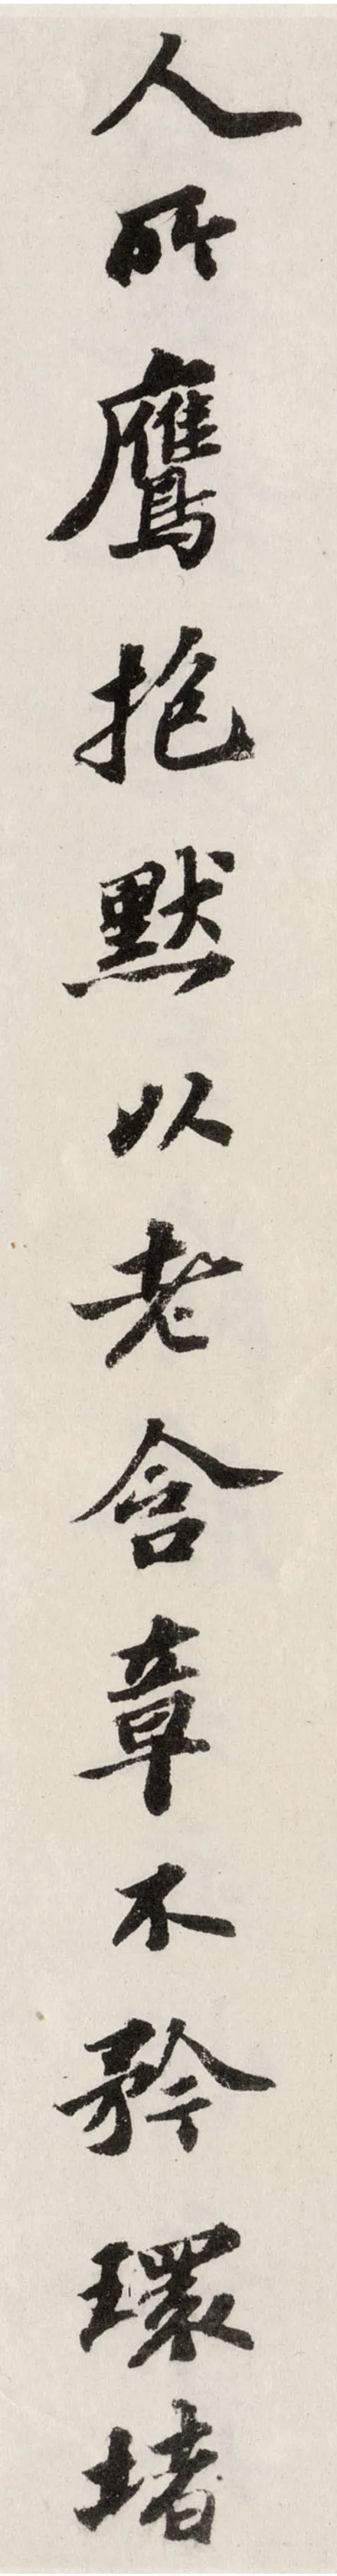 人所鷹抱默以老含章不矜環堵